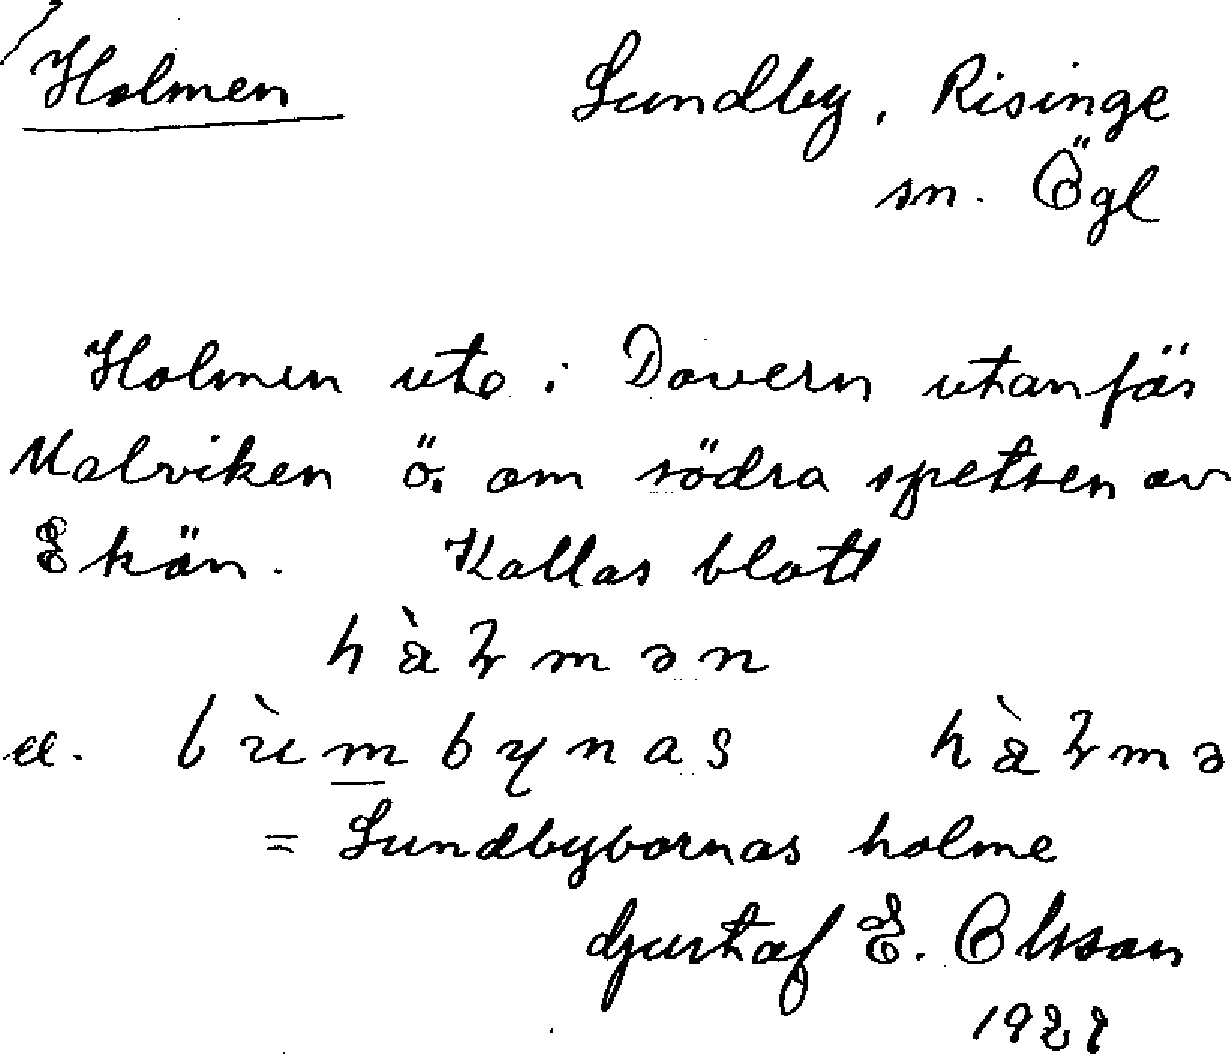 Holmen Lundby, Risinge
sn. Ögl
Holmen ute i Dovern utanför
Malviken ö. om södra spetsen av
Ekön. Kallas blott
hàɽmən
el. lùmbynas hàɽmə
= Lundbybornas holme
Gustaf E. Olsson